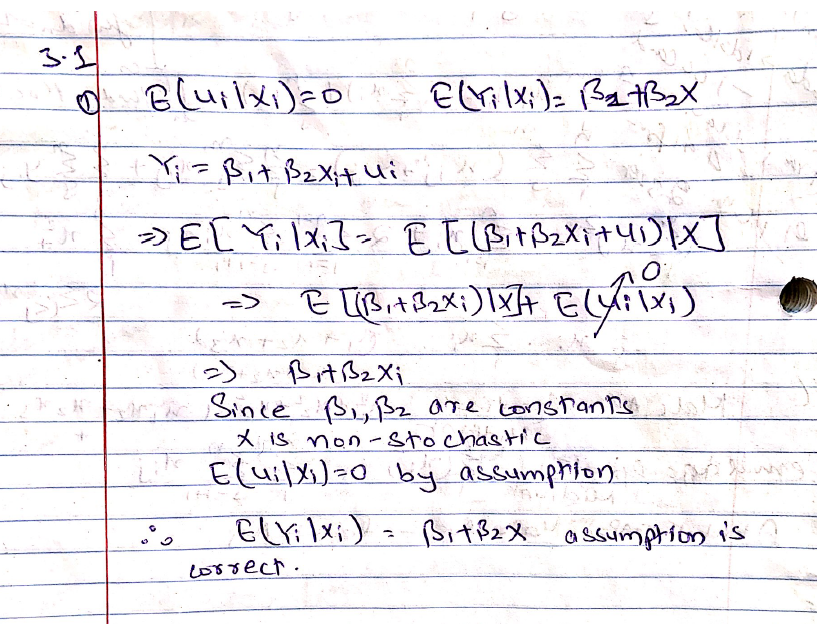 3.1
① E(ui|xi)=0 E(Yi|xi)= β1+β2X
Yi = β1+ β2Xi+ ui
⇒ E[ Yi|Xi] = E [(β1+β2Xi+ui)|X]
0
⇒ E [(β1+β2xi)|X]+ E(ui|xi)
⇒ β1+β2Xi
Since β1, β2 are constants
X is non-stochastic
E(ui|Xi)=0 by assumption
∴ E(Yi|xi) = β1+β2X assumption is
correct.